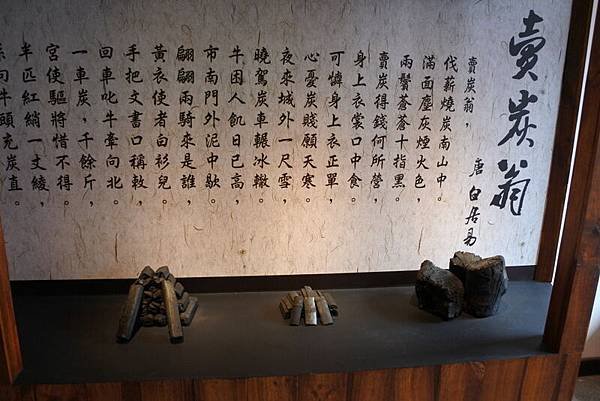 賣炭翁
唐 白居易
賣炭翁，
伐薪燒炭南山中。
滿面塵灰煙火色，
兩鬢蒼蒼十指黑。
賣炭得錢何所營，
身上衣裳口中食。
可憐身上衣正單，
心憂炭賤願天寒。
夜來城外一尺雪，
曉駕炭車輾冰轍。
牛困人飢日已高，
市南門外泥中歇。
翩翩兩騎來是誰，
黃衣使者白衫兒
手把文書口稱敕，
回車叱牛牽向北。
一車炭，千餘斤，
宮使驅將惜不得。
半匹紅綃一丈綾，
向牛頭充炭直。